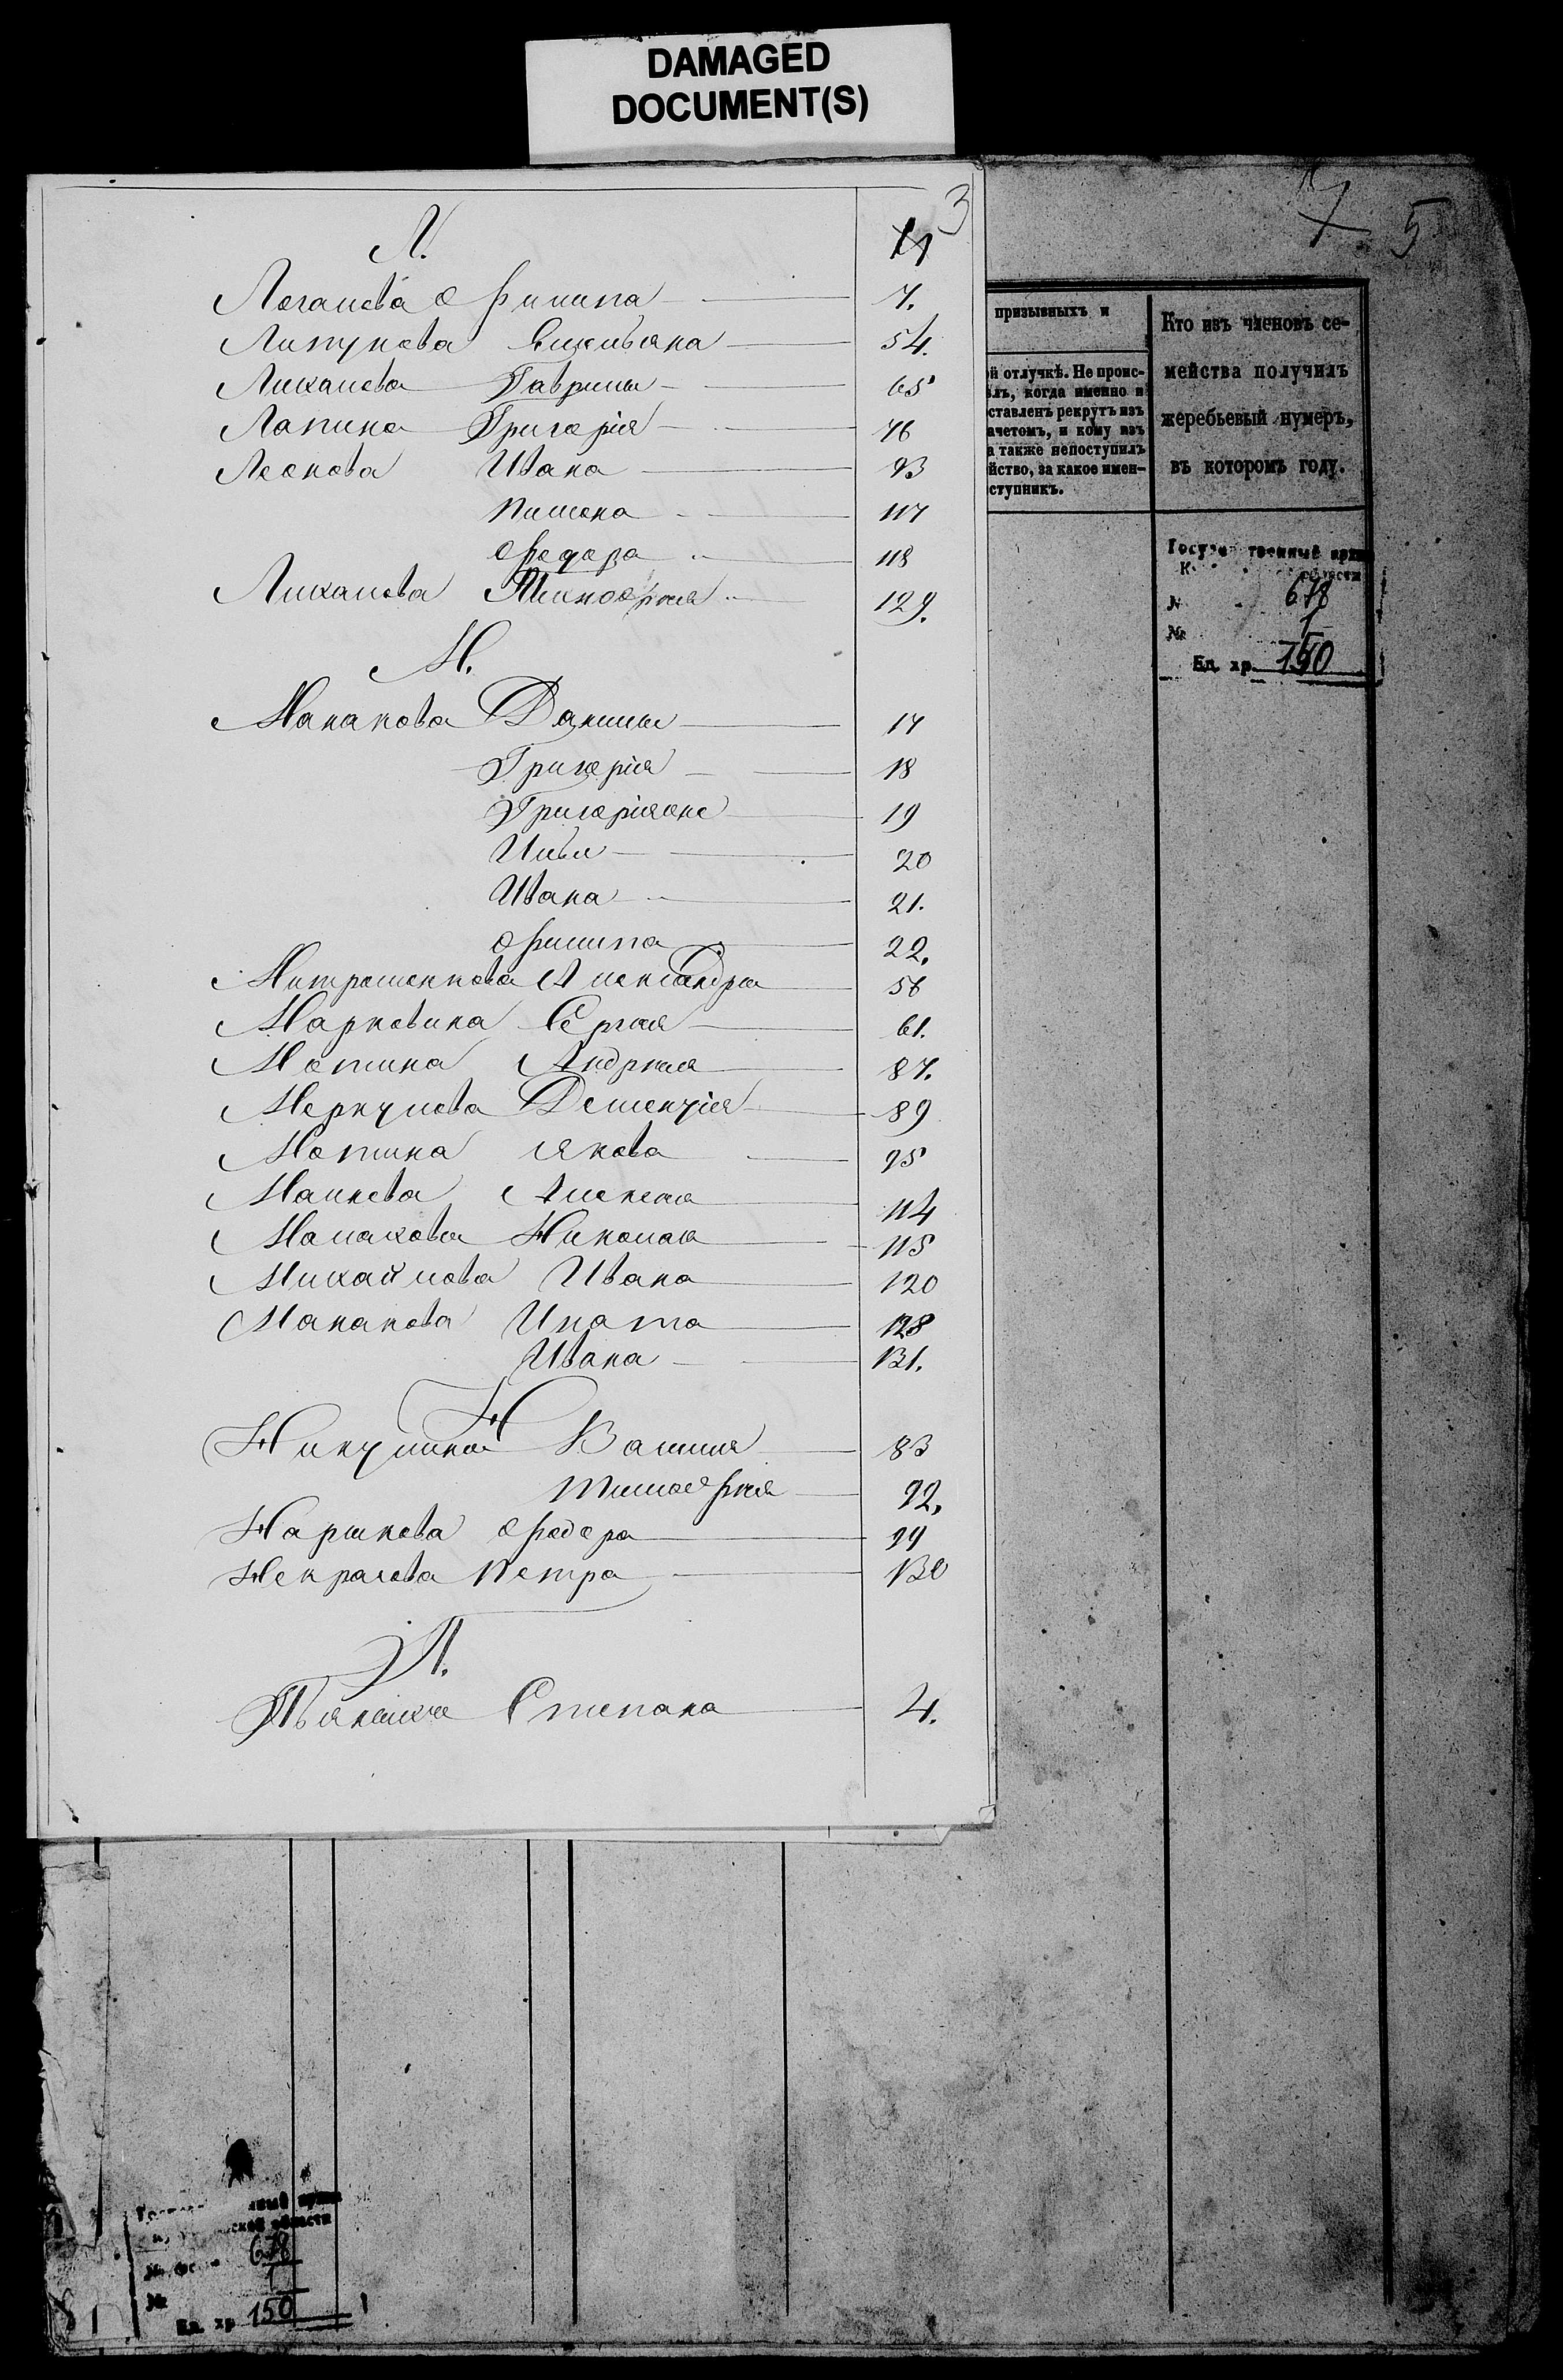 DAMAGED
DOCUMENT(S)
3
Л.
Логанова Филипа 7.
Липунова Емельяна 54.
Лиханова Гаврилы 65
Лапина Григорія 76
Леонова Ивана 93
Пимена 117
Федора 118
Лиханова Тимофея 129.
М.
Манакова Данилы 17
Григорія 18
Григорія оне 19
Ильи 20
Ивана 21.
Филипа 22.
Митрошенкова Александра 56
Марковина Сергея 61.
Мотина Андрея 87.
Меркулова Дементія 89
Мотина Якова 95
Малкова Алексея 114
Малахова Николая 115
Михайлова Ивана 120
Манакова Ипата 128
Ивана 131.
Н
Никулина Василія 83
Тимофея 92.
Нарыкова Федора 99
Некрасова Петра 130
П.
Степана 4.
7 5
призывныхъ и
й отлучкѣ. Не проис-
лъ, когда именно и
ставленъ рекрутъ изъ
ачетомъ, и кому изъ
а также непоступилъ
йство, за какое имен-
ступникъ.
Кто изъ членовъ се-
мейства получилъ
жеребьевый нумеръ,
въ которомъ году.
Государственный архив
области
678
№ 1
Ед. хр. 150
ской области
678
№ 1
Ед. хр. 150